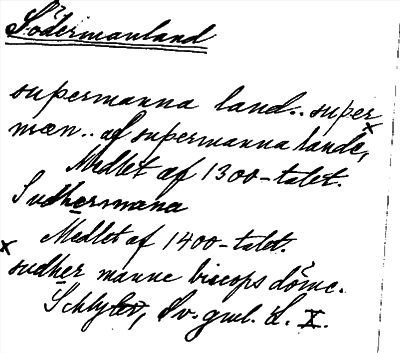 Södermanland
supermanna land.. super
mæn.. af supermanna lande,
Medlet af 1300-talet.
Sudhermana
Medlet af 1400-talet.
x sudher manne biscops döme.
Schlyter, Sv. gml. L. X.